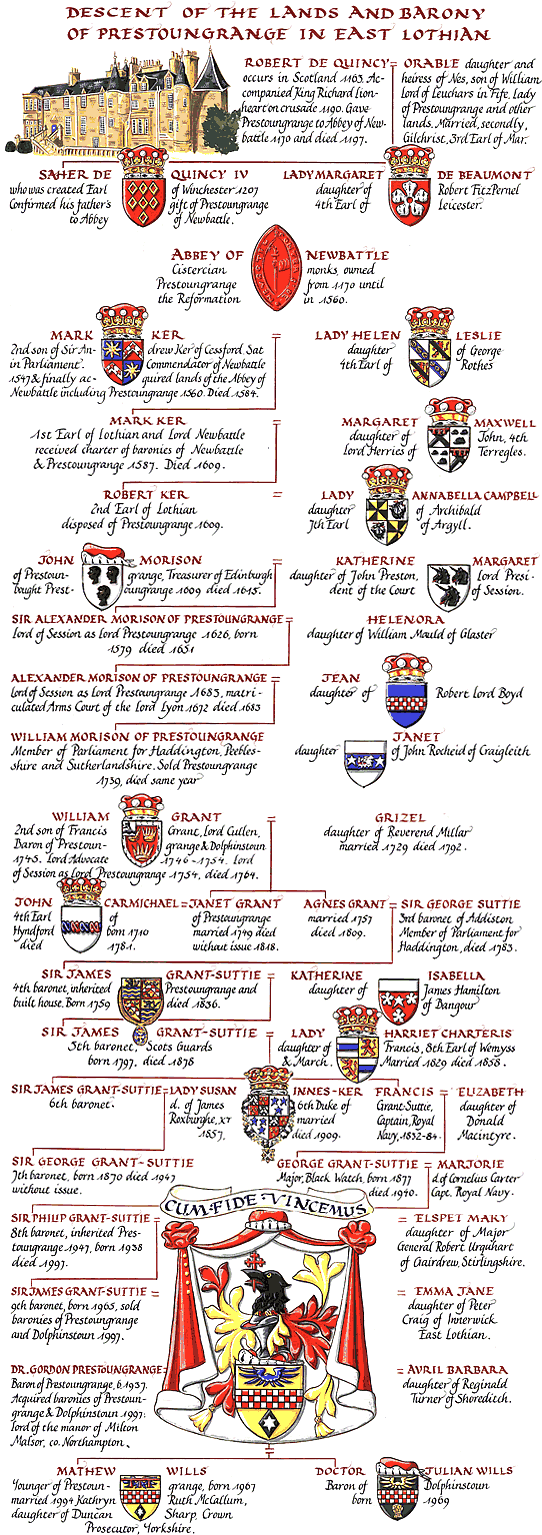 DESCENT OF THE LANDS AND BARONY
OF PRESTOUNGRANGE IN EAST LOTHIAN
ROBERT DE QUINCY =
occurs in Scotland 1163. Ac-
companied King Richard Lion-
heart on crusade 1190. Gave
Prestoungrange to Abbey of New-
battle 1170 and died 1197.
ORABLE daughter and
heiress of Nes, son of William
lord of Leuchars in Fife, lady
of Prestoungrange and other
lands. Married, secondly,
Gilchrist, 3rd Earl of Mar.
SAHER DE QUINCY IV
who was created Earl of Winchester 1207
Confirmed his father's gift of Prestoungrange
to Abbey of Newbattle.
LADY MARGARET DE BEAUMONT
daughter of Robert FitzPernel
4th Earl of Leicester.
ABBEY OF NEWBATTLE
Cistercian monks, owned
Prestoungrange from 1170 until
the Reformation in 1560.
MARK KER =
2nd son of Sir An- drew Ker of Cessford. Sat
in Parliament. Commendator of Newbattle
1547 & finally ac- quired lands of the Abbey of
Newbattle including Prestoungrange 1560. Died 1584.
LADY HELEN LESLIE
daughter of George
4th Earl of Rothes
MARK KER =
1st Earl of Lothian and Lord Newbattle
received charter of baronies of Newbattle
& Prestoungrange 1587. Died 1609.
MARGARET MAXWELL
daughter of John, 4th
lord Herries of Terregles.
ROBERT KER =
2nd Earl of Lothian
disposed of Prestoungrange 1609.
LADY ANNABELLA CAMPBELL
daughter of Archibald
7th Earl of Argyll.
JOHN MORISON =
of Prestoun- grange, Treasurer of Edinburgh
bought Prest- oungrange 1609 died 1615.
KATHERINE MARGARET
daughter of John Preston, lord Presi-
dent of the Court of Session.
SIR ALEXANDER MORISON OF PRESTOUNGRANGE =
lord of Session as lord Prestoungrange 1626, born
1579 died 1651
HELENORA
daughter of William Mould of Glaster
ALEXANDER MORISON OF PRESTOUNGRANGE =
lord of Session as Lord Prestoungrange 1683, matri-
culated Arms Court of the Lord Lyon 1672 died 1683
JEAN
daughter of Robert lord Boyd
WILLIAM MORISON OF PRESTOUNGRANGE
Member of Parliament for Haddington, Peebles-
shire and Sutherlandshire. Sold Prestoungrange
1739, died same year
JANET
daughter of John Rocheid of Craigleith
WILLIAM GRANT =
2nd son of Francis Grant, lord Cullen,
Baron of Prestoun- grange & Dolphinstoun
1745. lord Advocate 1746 - 1754. lord
of Session as lord Prestoungrange 1754, died 1764.
GRIZEL
daughter of Reverend Millar
married 1729 died 1792.
JOHN CARMICHAEL =
4th Earl of
Hyndford born 1710
died 1781.
JANET GRANT
of Prestoungrange
married 1749 died
without issue 1818.
AGNES GRANT =
married 1757
died 1809.
SIR GEORGE SUTTIE
3rd baronet of Addiston
Member of Parliament for
Haddington, died 1783.
SIR JAMES GRANT-SUTTIE =
4th baronet, inherited Prestoungrange and
built house. Born 1759 died 1836.
KATHERINE ISABELLA
daughter of James Hamilton
of Bangour
SIR JAMES GRANT-SUTTIE =
5th baronet, Scots Guards
born 1797, died 1878
LADY HARRIET CHARTERIS
daughter of Francis, 8th Earl of Wemyss
& March. Married 1829 died 1858.
SIR JAMES GRANT-SUTTIE =
6th baronet.
LADY SUSAN INNES-KER
d. of James 6th Duke of
Roxburghe, KT married
1857, died 1909.
FRANCIS =
Grant-Suttie,
Captain, Royal
Navy, 1832-84.
ELIZABETH
daughter of
Donald
Macintyre.
SIR GEORGE GRANT-SUTTIE
7th baronet, born 1870 died 1947
without issue.
GEORGE GRANT-SUTTIE =
Major, Black Watch, born 1877
died 1940.
MARJORIE
d. of Cornelius Carter
Capt. Royal Navy.
CUM FIDE VINCEMUS
SIR PHILIP GRANT-SUTTIE =
8th baronet, inherited Pres-
toungrange 1947, born 1938
died 1997.
= ELSPET MARY
daughter of Major
General Robert Urquhart
of Gairdrew, Stirlingshire.
SIR JAMES GRANT-SUTTIE =
9th baronet, born 1965, sold
baronies of Prestoungrange
and Dolphinstoun 1997.
= EMMA JANE
daughter of Peter
Craig of Innerwick
East Lothian.
DR. GORDON PRESTOUNGRANGE =
Baron of Prestoungrange, b 1937.
Acquired baronies of Prestoun-
grange & Dolphinstoun 1997:
lord of the manor of Milton
Malsor, co. Northampton.
= AVRIL BARBARA
daughter of Reginald
Turner of Shoreditch.
MATHEW WILLS
Younger of Prestoun- grange, born 1967
married 1994 Kathryn Ruth McCallum,
daughter of Duncan Sharp, Crown
Prosecutor, Yorkshire.
DOCTOR JULIAN WILLS
Baron of Dolphinstoun
born 1969